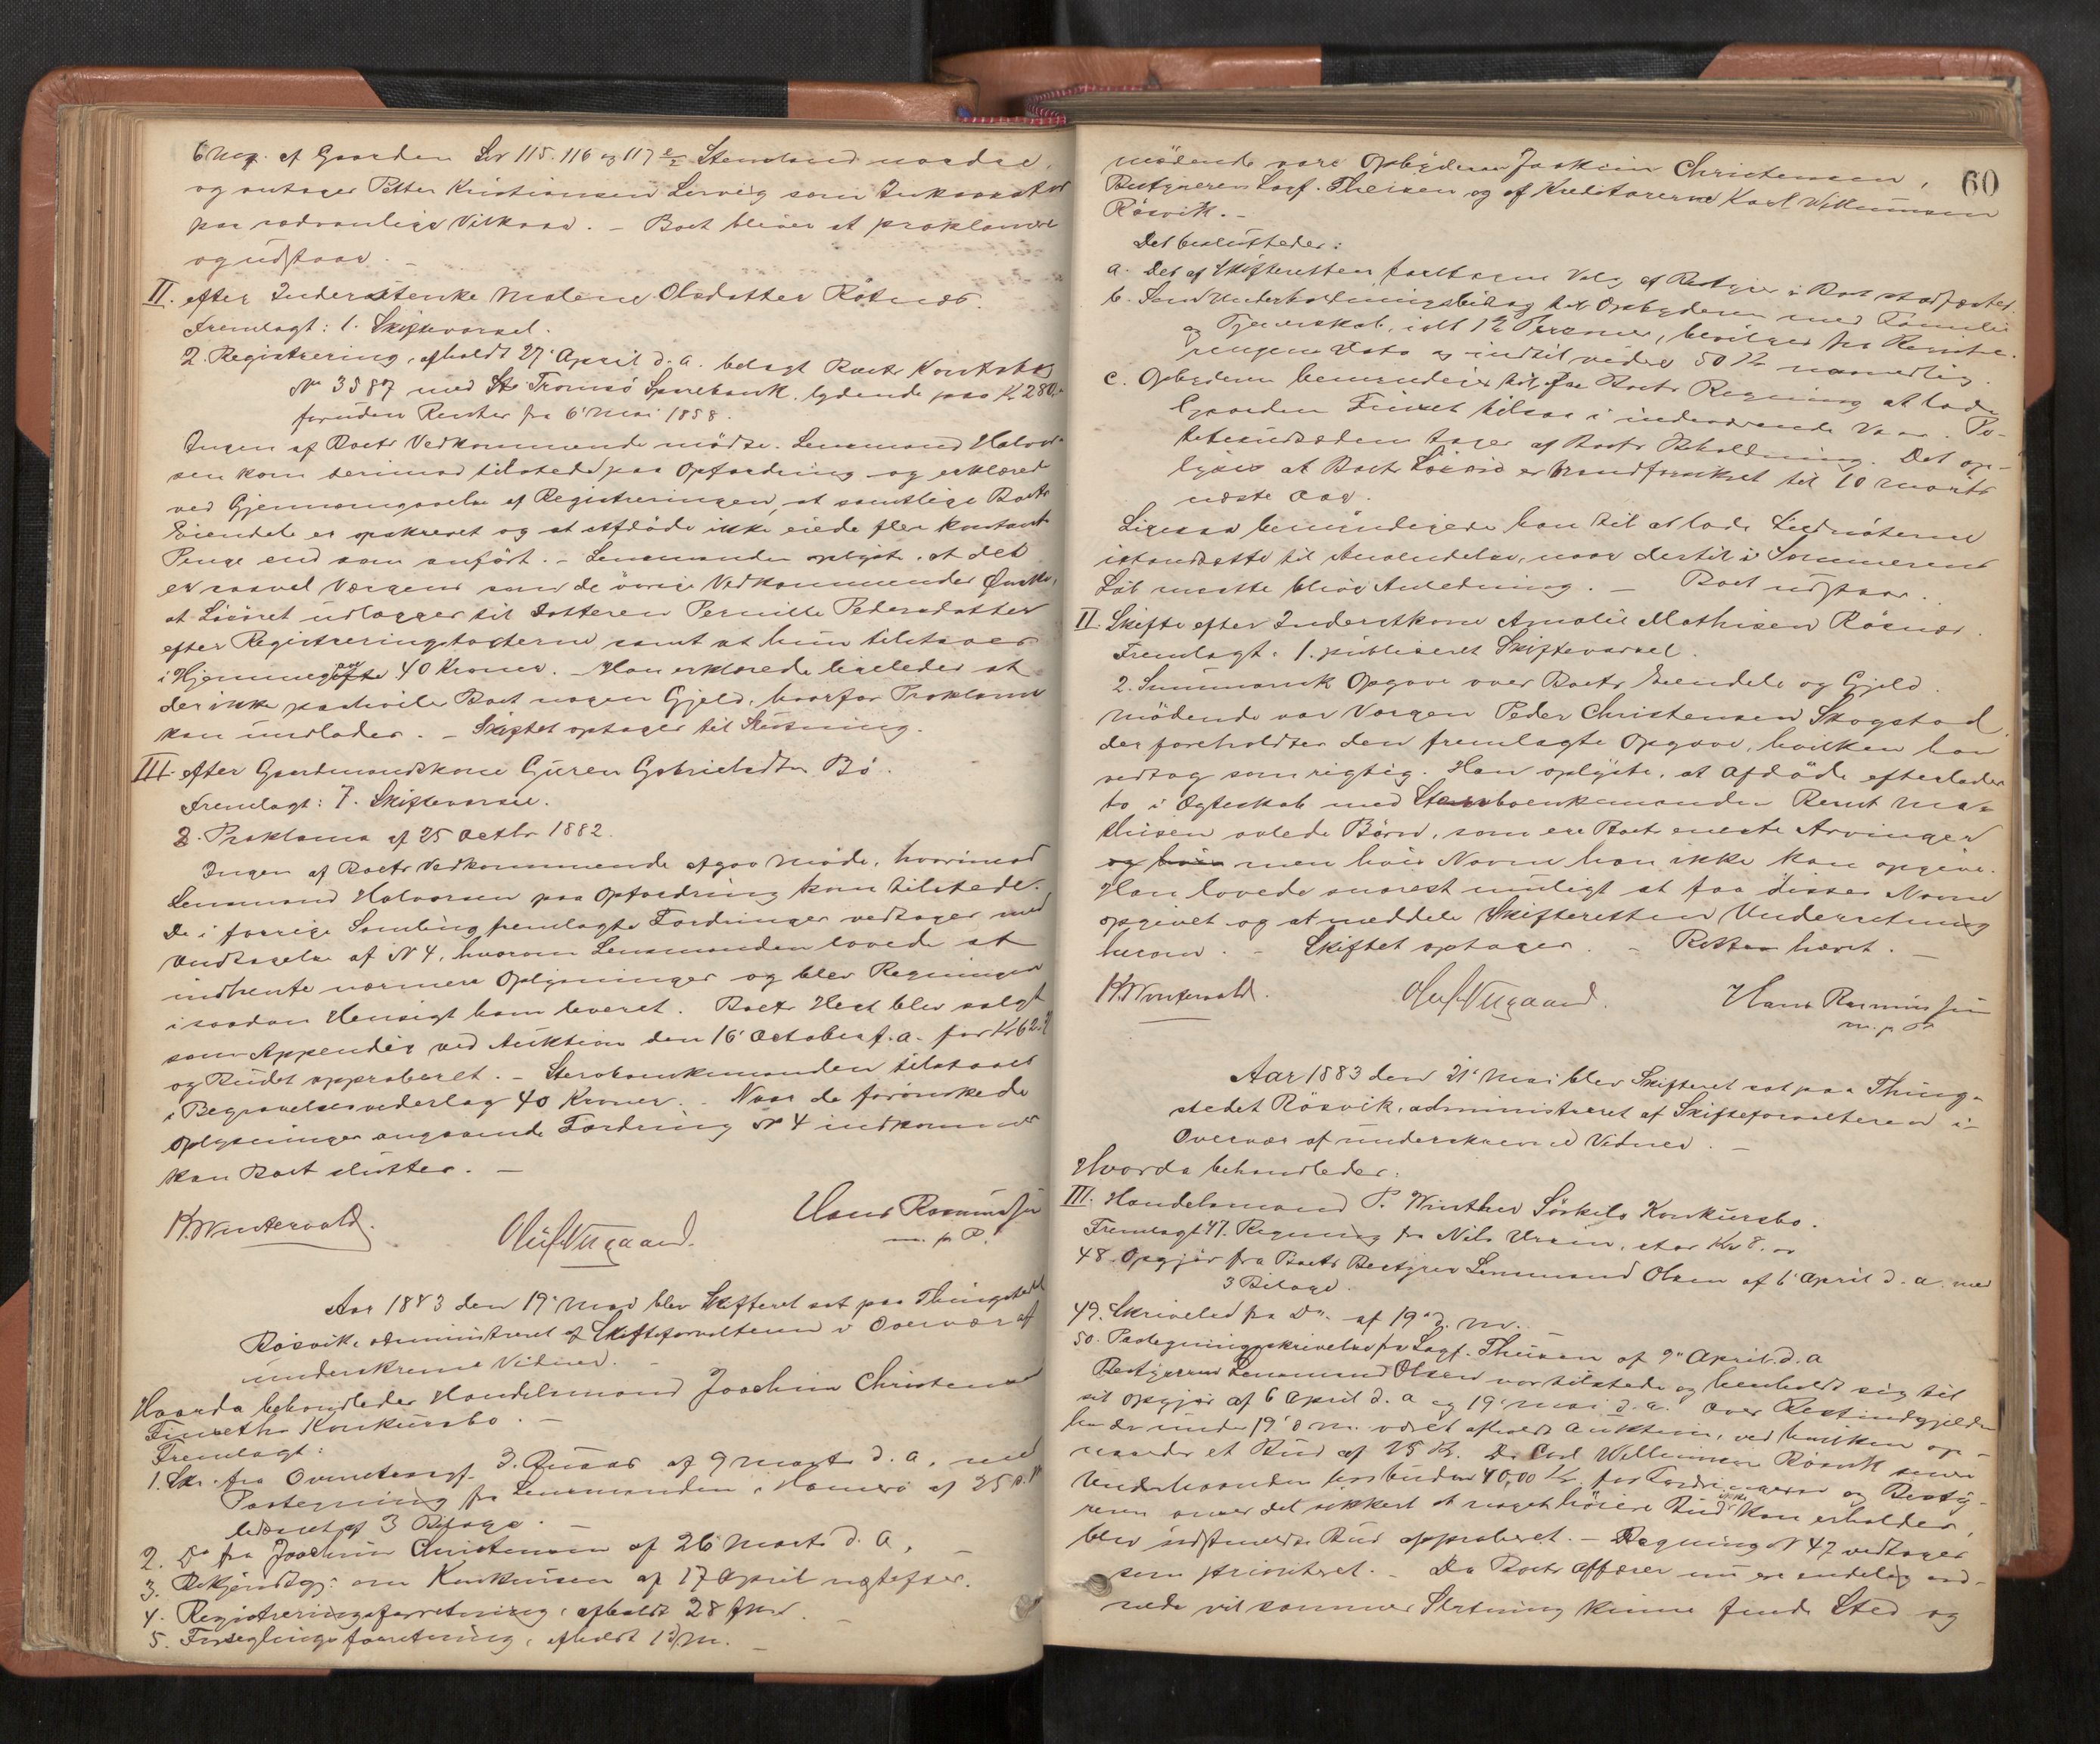 6 Mg. af Gaarden Lev 115. 116 og 117 Stensland nordre,
og antager Petter Kristiansen Lervig som Inkassator
paa sædvanlige Vilkaar. – Boet bliver at proklamere
og udstaar. –
II. efter Inderstenke Malene Olsdatter Rötnæs.
Fremlagt: 1. Skiftevarsel.
2. Registrering, afholdt 27' April d. a. belagt Boets Kontrabog
No 3587 med Tromsö Sparebank, lydende paa Kr 280,-
foruden Renter fra 6' Mai 1858.
Ingen af Boets Vedkommende mödte. Lensmand Halvor-
sen kom derimod tilstede paa Opfordring og erklærede
ved Gjennemgaaelse af Registreringen, at samtlige Boets
Eiendele er opskrevet og at afdöde ikke eiede fler kontant
Penge end som anfört. – Lensmanden oplyste, at det
er saavel Værgens som de övrige Vedkommendes Önske,
at Lösöret udlægges til Datteren Pernille Pedersdatter
efter Registreringstaxterne samt at hun tilstaaes
i Hjemmegifte 40 Kroner. – Han erklærede ligeledes at
der ikke paahviler Boet nogen Gjeld, hvorfor Proklama
kan undlades. – Skiftet optages til Slutning.
III. efter Gaardmandskone Guren Gabrielsdtr Bö.
Fremlagt: 7. Skiftevarsel.
8. Proklama af 25 Octbr 1882.
Ingen af Boets Vedkommende afgav Möde, hvorimod
Lensmand Halvorsen paa Opfordring kom tilstede.
De i forrige Samling fremlagte Fordringer vedtages med
Undtagelse af No 4, hvorom Lensmanden lovede at
indhente nærmere Oplysninger og blev Regningen
i saadan Hensigt ham leveret. Boets Hest blev solgt
som Appendix ved Auktion den 16' October f. a. for Kr 62.
og Budet approberet. – Sterboenkemanden tilstaaes
i Begravelsesvederlag 40 Kroner. – Naar de forönskede
Oplysninger angaaende Fordring No 4 indkommer
kan Boet sluttes. –
K. Wintervold. Oluf Nygaard. Hans Rasmussen
m. p. P.
Aar 1883 den 19' Mai blev Skifteret sat paa Thingstedet
Rösvik, administreret af Skifteforvalteren i Overvær af
underskrevne Vidner. –
Hvorda behandledes Handelsmand Joachim Christensen
Finæths Konkursbo. –
Fremlagt:
1. Skr. fra Overretssagf. J. Ruaas af 9 Marts d. a., med
Paategning fra Lensmanden i Hamerö af 25 s. M.
ledsaget af 3 Bilage. –
2. Do fra Joachim Christensen af 26' Marts d. a. –
3. Bekjendtgj: om Konkursen af 17 April
4. Registreringsforretning, afholdt 28 –
5. Forseglingsforretning, afholdt 1 d. M. –
60
mödende vare Opbyderen Joakim Christensen,
Bestyreren Sagf. Theisen og af Kreditorerne Karl Vilhumsen
Rösvik. –
Det besluttedes:
a. Det af Skifteretten foretagne Valg af Bestyrer i Boet stadfæstes.
b. Som Underholdningsbidrag til Opbyderen med Familie
og Tjenerskab, ialt 12 Personer, bevilges fra Registre-
ringens Dato og indtil videre 50 Kr maanedlig.
c. Opbyderen bemyndiges til for Boets Regning at lade
Gaarden Finæt tilsaa i indeværende Vaar. Po-
tetesudsæden tages af Boets Beholdning. Det op-
lyses at Boets Lösöre er brandforsikret til 10 Marts
næste Aar.
Ligesaa bemyndigedes han til at lade Sildnöterne
istandsætte til Anvendelse, naar dertil i Sommerens
Löb maatte blive Anledning. – Boet udstaar.
II. Skifte efter Inderstkone Amalie Mathisen Rösnæs.
Fremlagt: 1. publiseret Skiftevarsel.
2. Summarisk Opgave over Boets Eiendele og Gjeld.
Mödende var Værgen Peder Christensen Skogstad
der foreholdtes den fremlagte Opgave, hvilken han
vedtog som rigtig. Han oplyste, at Afdöde efterlader
to i Ægteskab med Sterboenkemanden Bernt Ma-
thisen avlede Börn, som ere Boets eneste Arvinger
og hvis men hvis Navne han ikke kan opgive.
Han lovede snarest muligt at faa disses Navne
opgivet og at meddele Skifteretten Underretning
herom. – Skiftet optages. – Retten hævet. –
K. Wintervold. Oluf Nygaard. Hans Rasmussen
m. p. P.
Aar 1883 den 21' Mai blev Skifteret sat paa Thing-
stedet Rösvik, administreret af Skifteforvalteren i
Overvær af underskrevne Vidner. –
Hvorda behandledes:
III. Handelsmand P. Winther Sörkils Konkursbo.
Fremlagt 47. Regning fra Nils Ursin, stor Kr 8.
48. Opgjör fra Boets Bestyrer Lensmand Olsen af 6' April d. a. med
3 Bilage.
49. Skrivelse fra Do. af 19' d. M.
50. Paategningsskrivelse fra Sagf. Theisen af 9' April d. a
Bestyreren Lensmand Olsen var tilstede og henholdt sig til
sit Opgjör af 6 April d. a og 19' Mai d. a. Over Restindgjelden
har der under 19' d. M. været afholdt Auktion, ved hvilken op-
naaedes et Bud af 25 Kr. Da Carl Willumsen Rösvik senere
underhaanden har buden 40,00 Kr. for Fordringerne og Besty-
reren anser det sikkert at noget höiere Bud ikke kan erholdes,
blev sidstnævnte Bud approberet. – Regning No 47 vedtages
som prioriteret. – Da Boets Affærer nu ere endelig ord-
nede vil sammes Slutning kunne finde Sted og